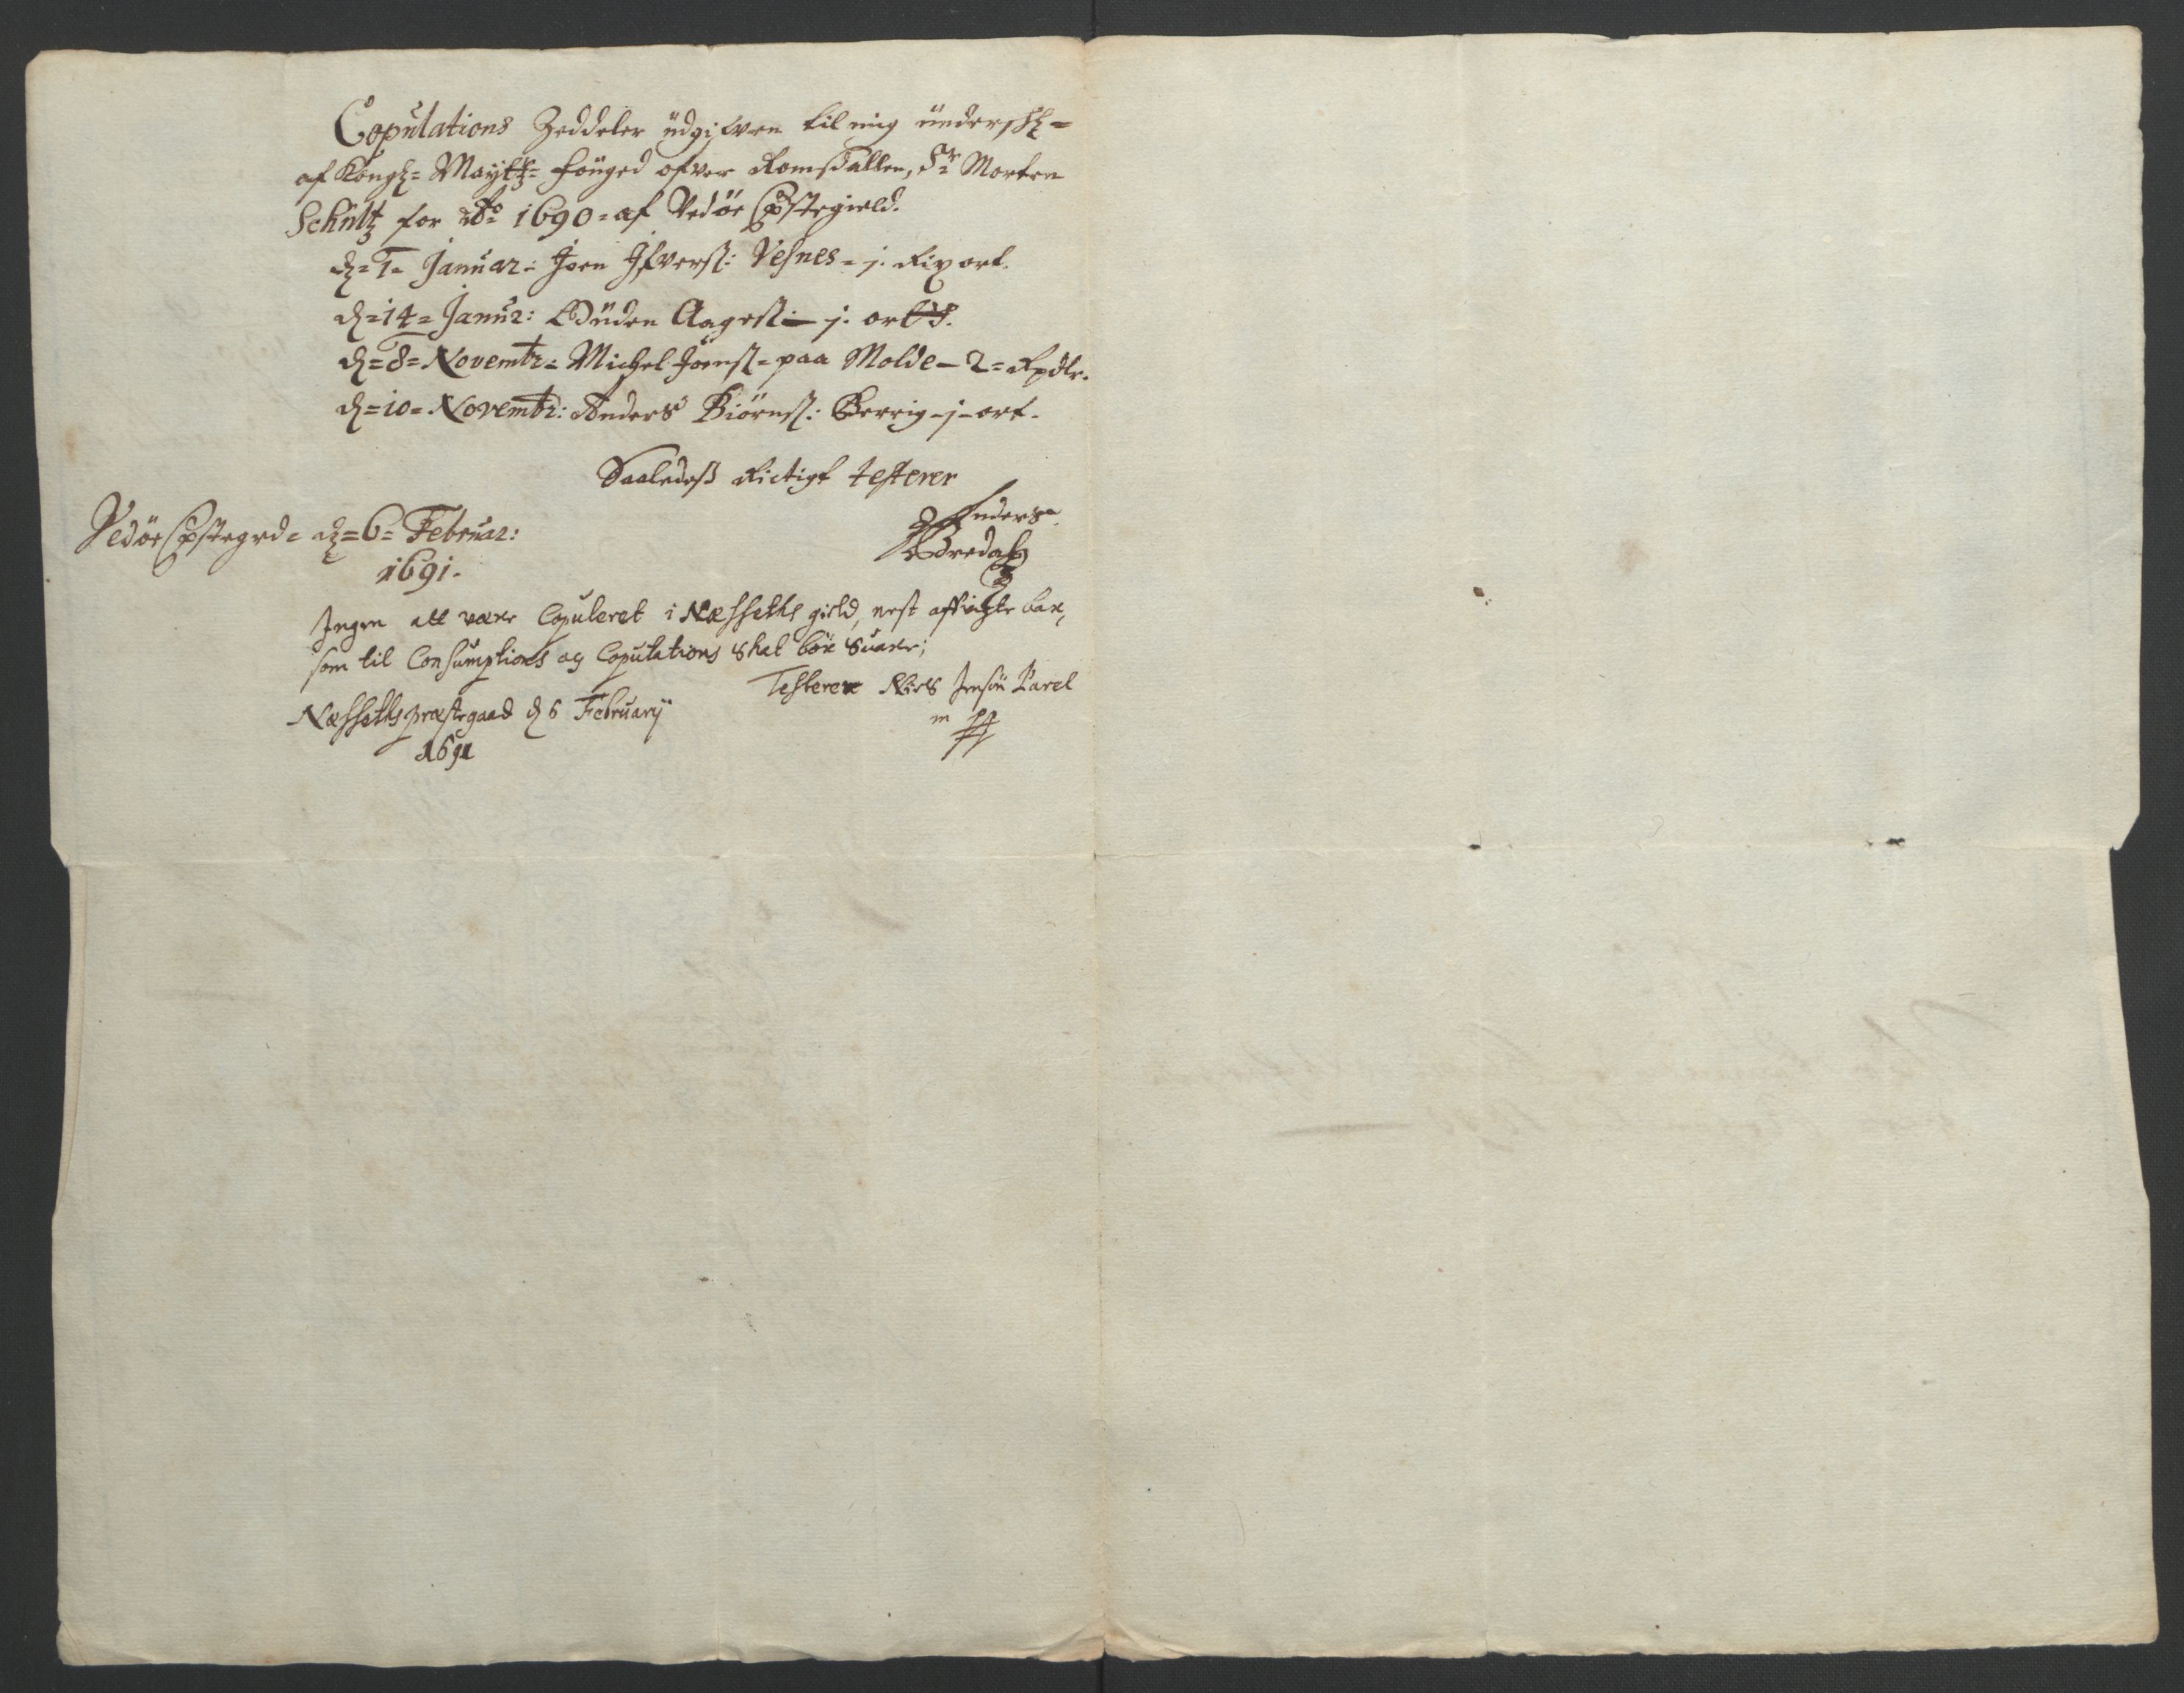 Copulations Zeddeler üdgifven til mig ünderskr=
af Kongl= Maytz= fouged ofver Romsdallen, Sr Morten
Schültz for Ao 1690 = af Vedöe Præstegield.
d= 1= Januar: Joen Ifversl: Vesnes = j. Rix ort.
d= 14= Januar: Aagesl: j. ort
d= 8= Novembr= Michel Joensl= paa Molde - 2= Rixdlr.
d= 10= Novembr: Anders Biörnsl: Berrig - j - ort.
Saaledess Rictigt testerer
Vedöe Præstegrd= d= 6= Februar: Anders
1691. Bredal
Ingen att være Copuleret i Næssetts gield, nest affvigte aar,
som til Consumptions og Copulations Skat bör Suare;
Testerer Niels Jensön Parel
Næssetts præstegaad d 6 Februarij m pp
1691